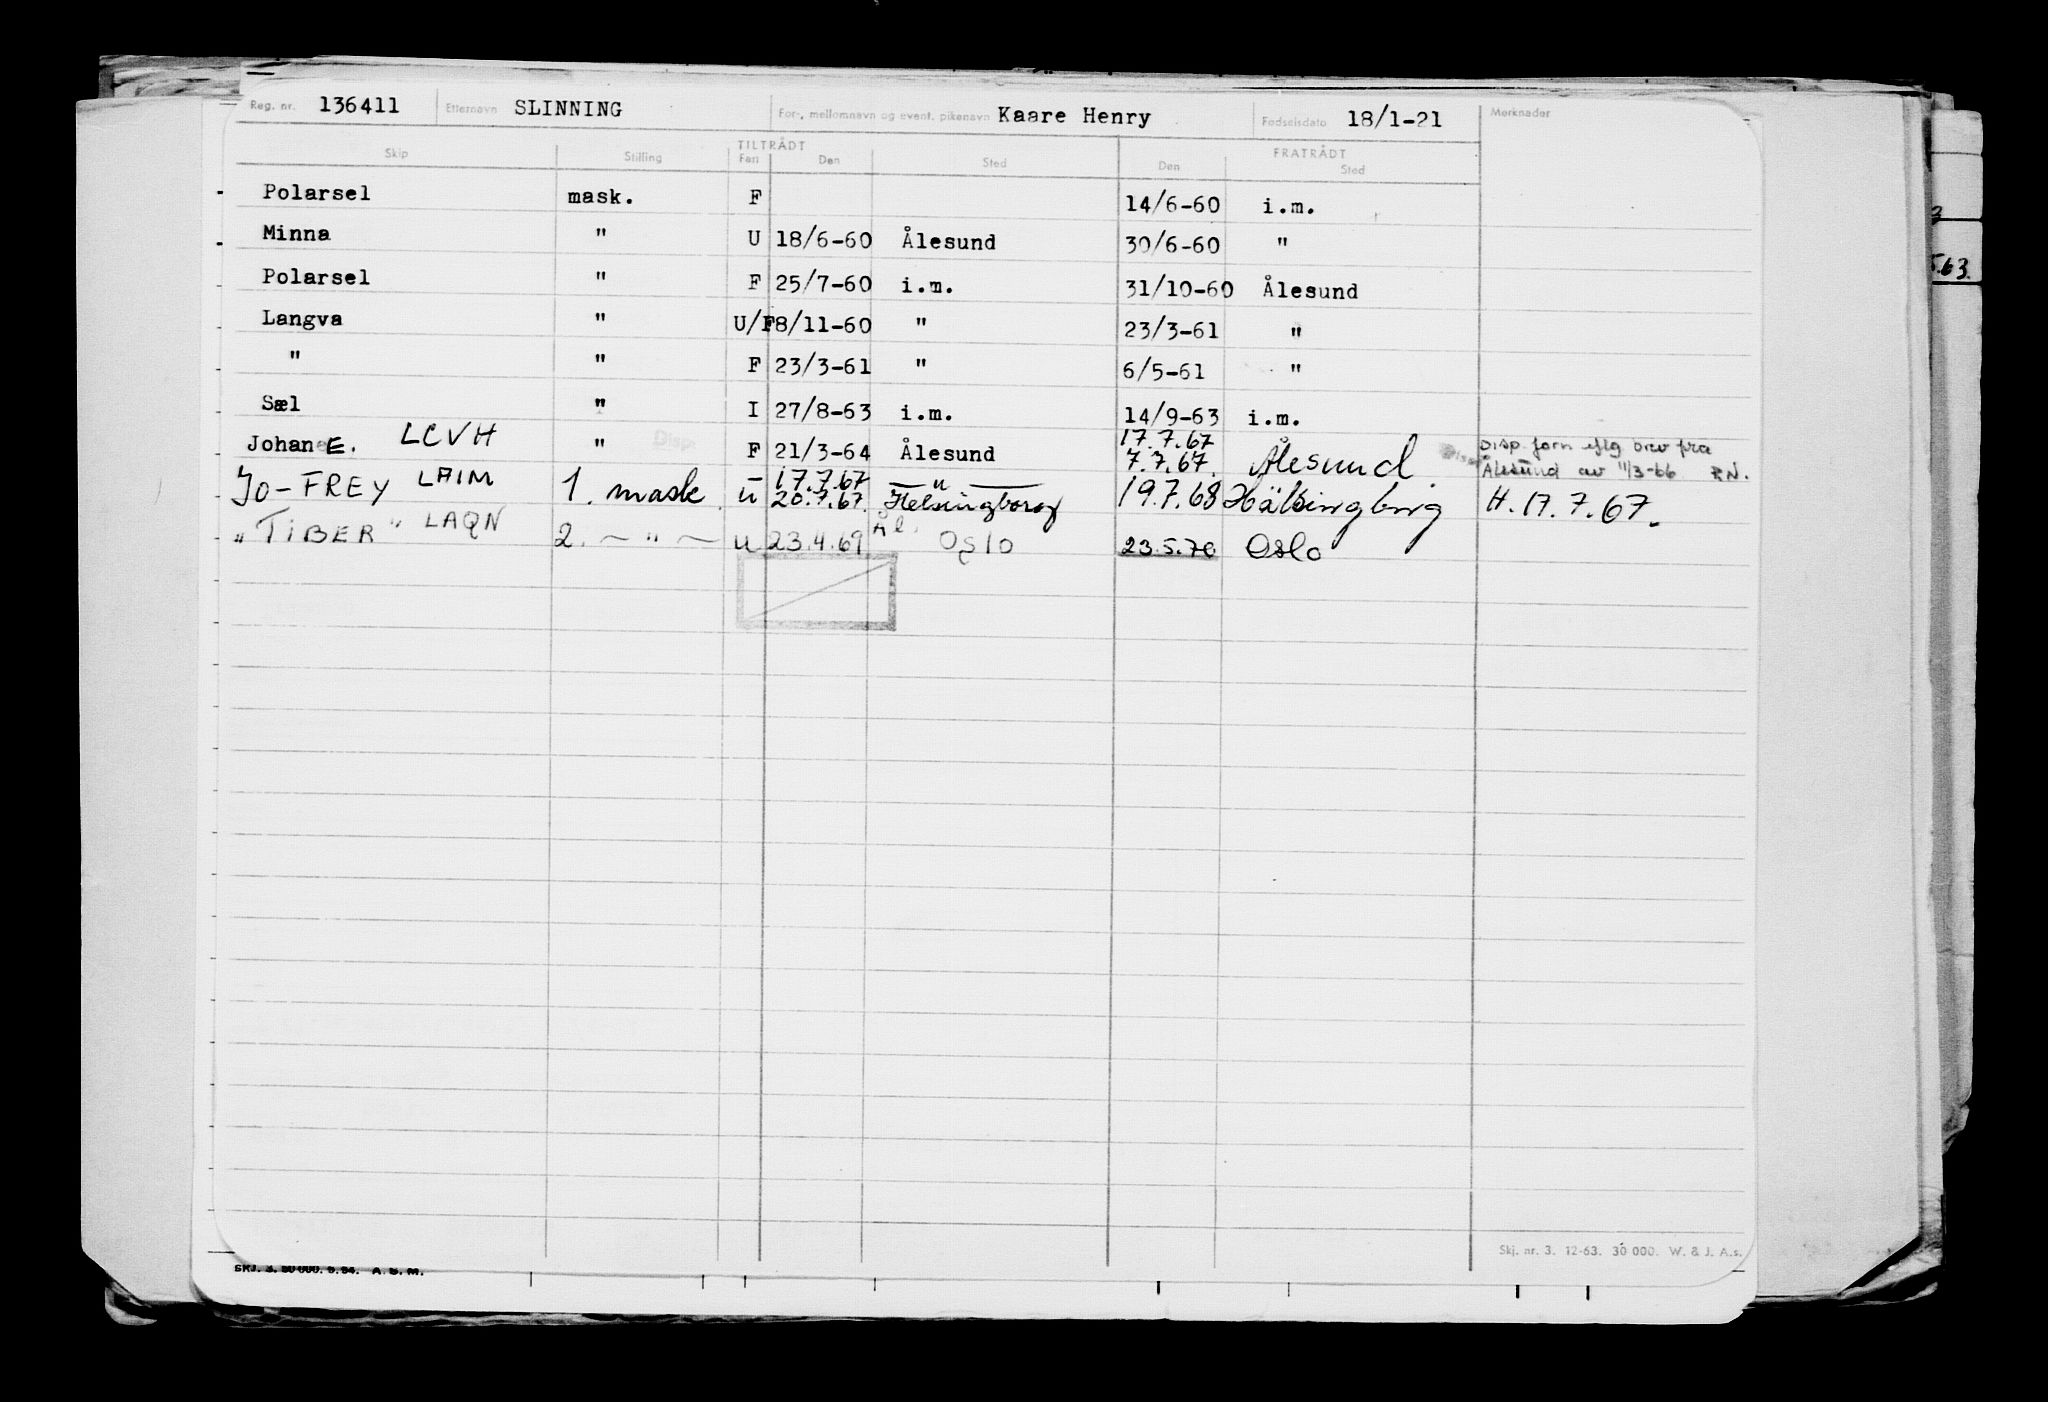 Reg. nr. 136411 Etternavn SLINNING For-, mellomnavn og event. pikenavn Kaare Henry Fødselsdato 18/1-21 Merknader
TILTRÅDT FRATRÅDT
Skip Stilling Fart Den Sted Den Sted
Polarsel mask. F 14/6-60 i.m.
Minna " U 18/6-60 Ålesund 30/6-60 "
Polarsel " F 25/7-60 i.m. 31/10-60 Ålesund
Langva " U/F 8/11-60 " 23/3-61 "
" " F 23/3-61 " 6/5-61 "
Sæl " I 27/8-63 i.m. 14/9-63 i.m.
17.7.67
Johan E. LCVH " Disp. F 21/3-64 Ålesund 7.7.67. Ålesund Disp. forn iflg brev fra
Ålesund av 11/3-66 R.N.
17.7.67 — " —
JO-FREY LAIM 1. mask. u 20.7.67. Helsingborg 19.7.68 Hälsingborg H. 17.7.67.
Ål.
"TIBER" LAQN 2. — " — u 23.4.69 Oslo 23.5.70 Oslo
Skj. nr. 3. 12-63. 30 000. W. & J. A.s.
SKJ. 3. 50 000. 9.54. A. S. M.
5.63.